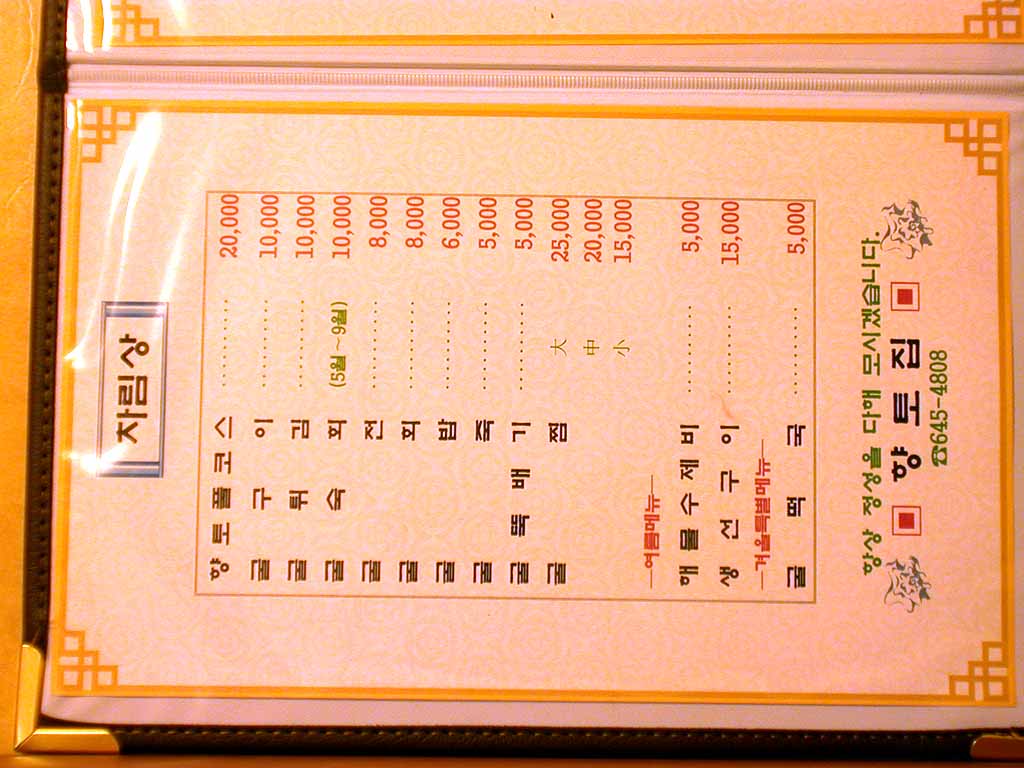 차림상
향토풀코스 ........... 20,000
굴구이 ........... 10,000
굴튀김 ........... 10,000
굴숙회 (5월~9월) 10,000
굴전 ........... 8,000
굴회 ........... 8,000
굴밥 ........... 6,000
굴죽 ........... 5,000
굴뚝배기 ........... 5,000
굴찜 大 25,000
中 20,000
小 15,000
―여름메뉴―
해물수제비 ........... 5,000
생선구이 ........... 15,000
―겨울특별메뉴―
굴떡국 ........... 5,000
항상 정성을 다해 모시겠습니다.
향토집
☎645-4808